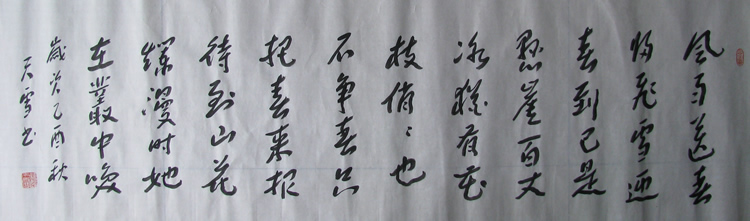 风雨送春
归飛雪迎
春到已是
懸崖百丈
冰猶有花
枝俏々也
不争春只
把春来报
待到山花
爛漫时她
在叢中咲
歲次乙酉秋
天雪书